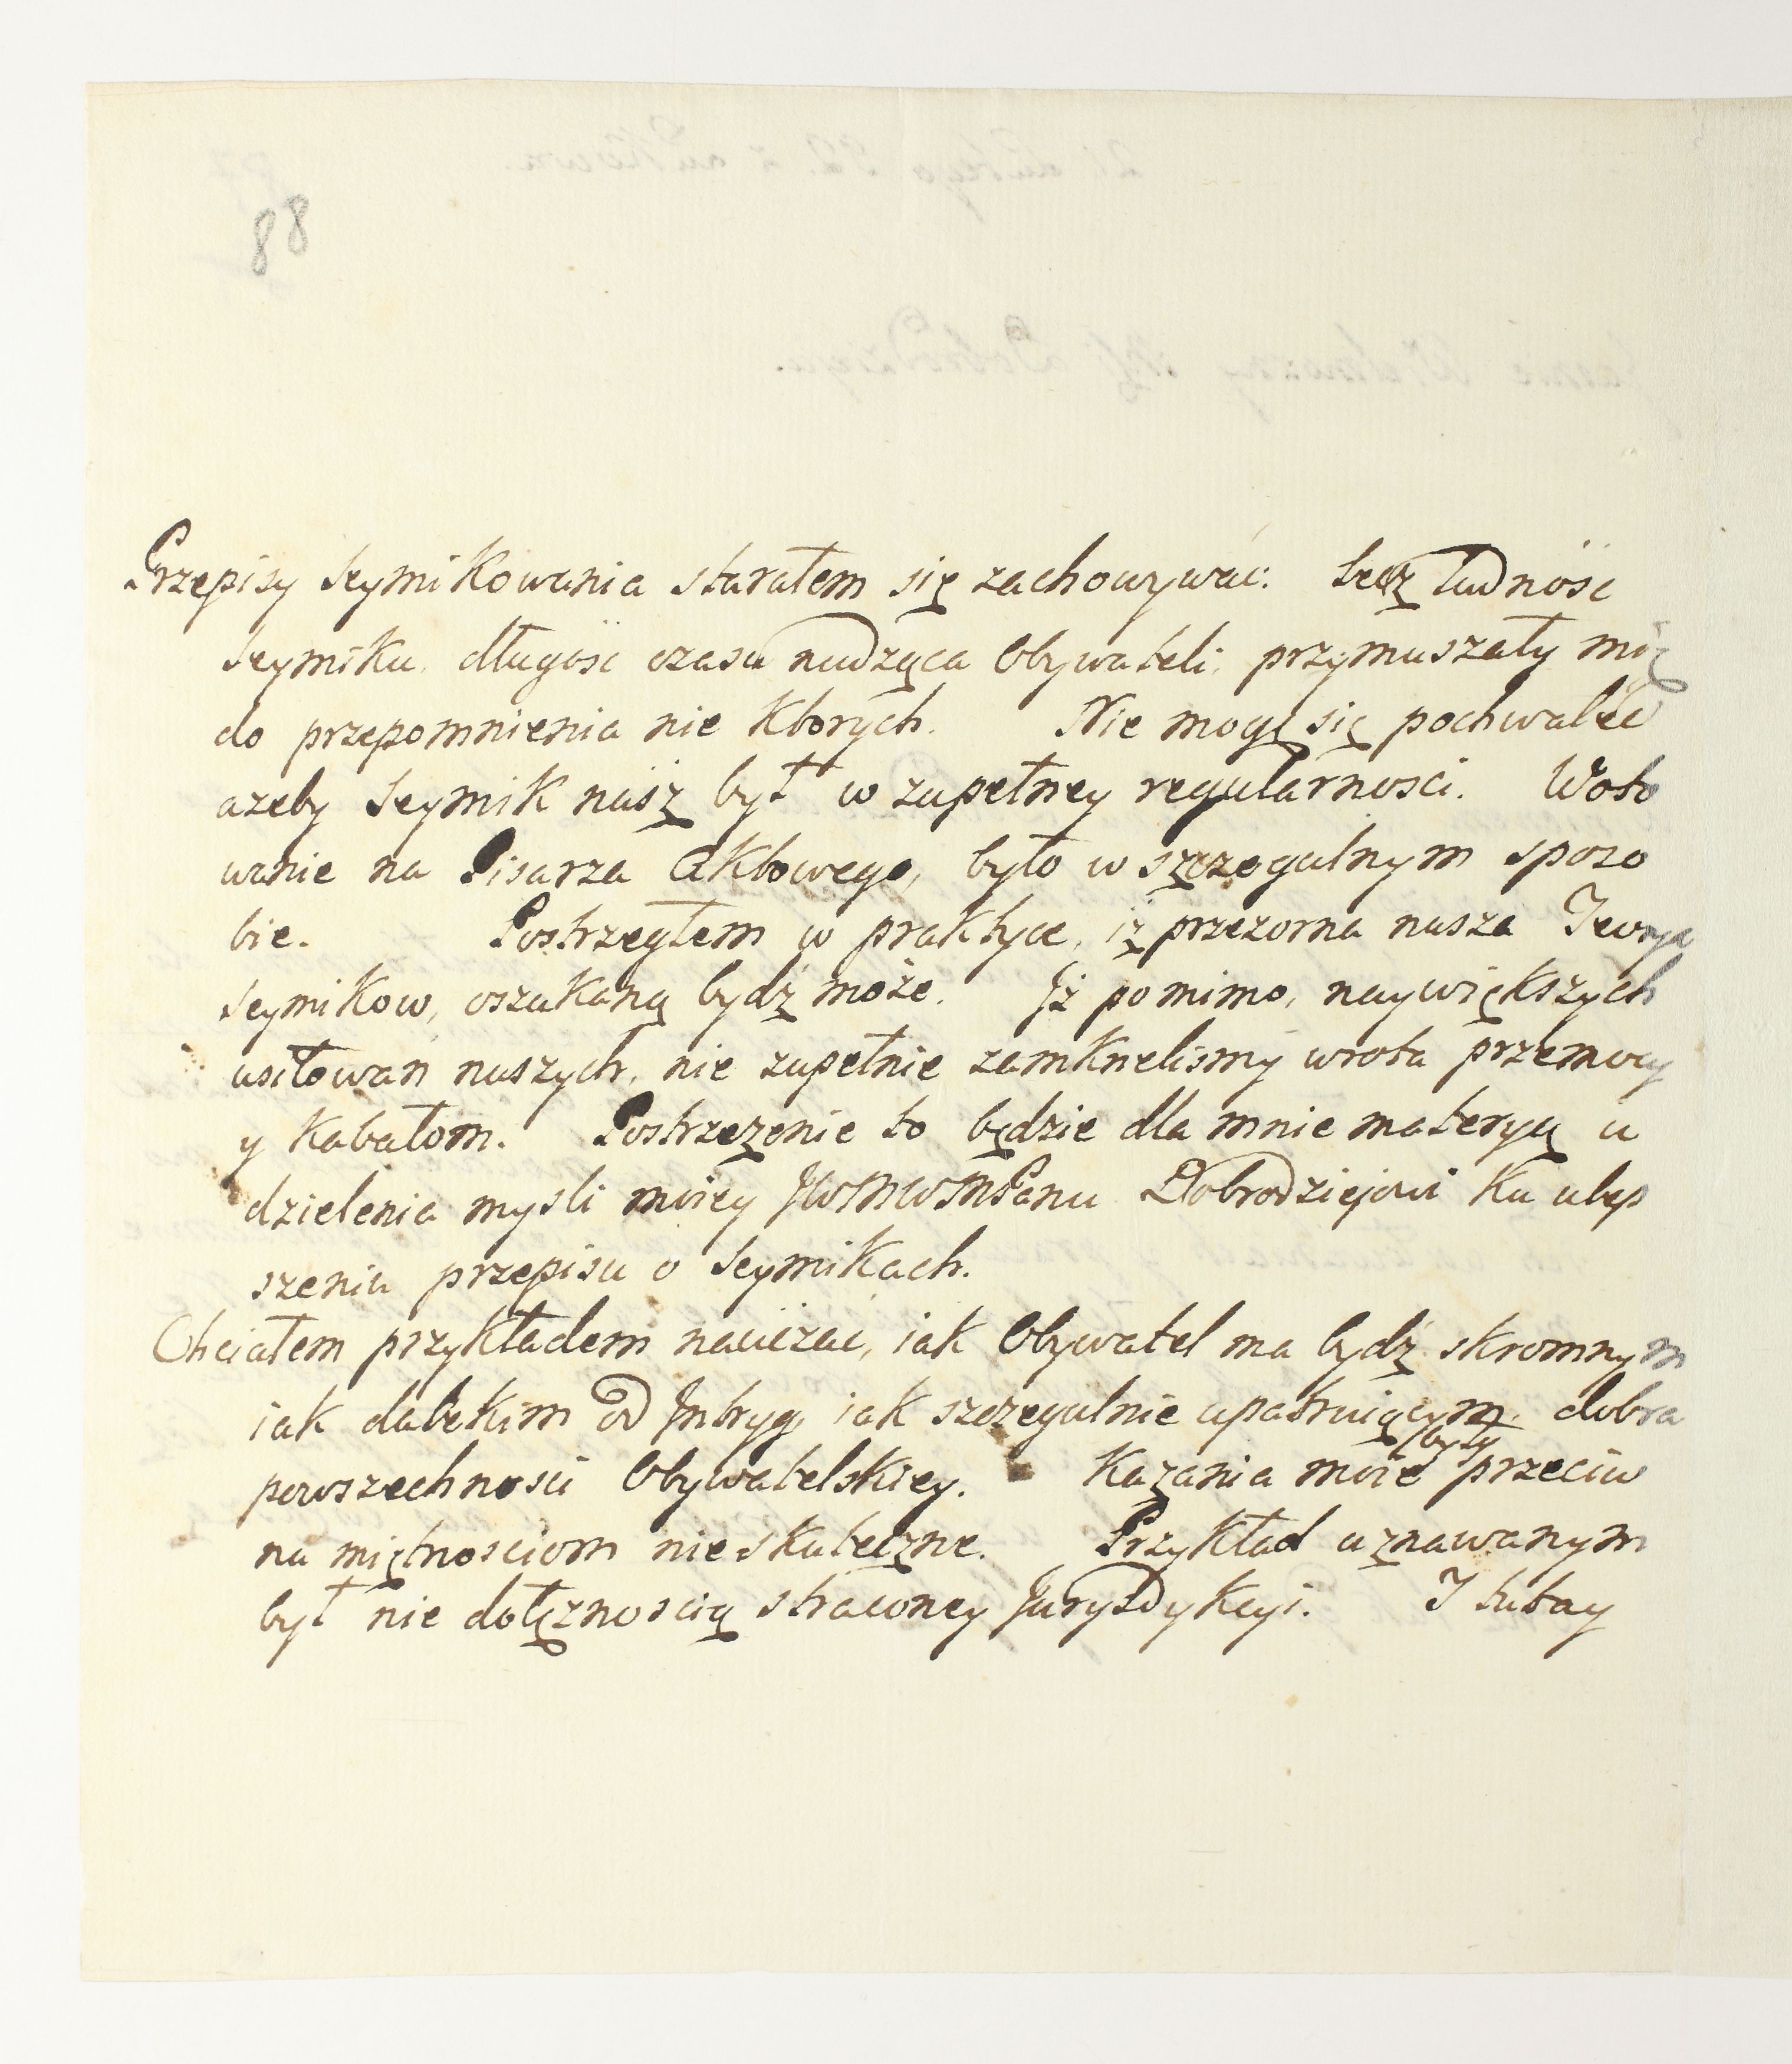 88
Przepisy Seymikowania starałem się zachowywać: lecz ludność
Seymiku, długość czasu nudząca Obywateli, przymuszały mię
do przepomnienia nie ktorych. Nie mogę się pochwalić
azeby Seymik nasz był w zupełney regularnosci. Woto
wanie na Pisarza Aktowego, było w szczegulnym sposo
bie. Postrzegłem w praktyce, iż przezorna nasza Teorya
Seymikow, oszukaną bydź może. Iż pomimo, naywiększych
usiłowań naszych, nie zupełnie zamkneliśmy wrota przemocy
y Kabałom. Postrzeżenie to będzie dla mnie materyą u
dzielenia mysli moiey JWMWMPanu Dobrodziejowi Ku ulep
szeniu przepisu o Seymikach.
Chciałem przykładem nauczać, iak Obywatel ma bydź skromnym
iak dalekim od Intryg, iak szczegulnie upatruiącym dobra
powszechnosci Obywatelskiey. Kazania moie były przeciw
na miętnosciom nieskuteczne. Przykład uznawanym
był nie dołężnoscią straconey Juryzdykcyi. I tutay